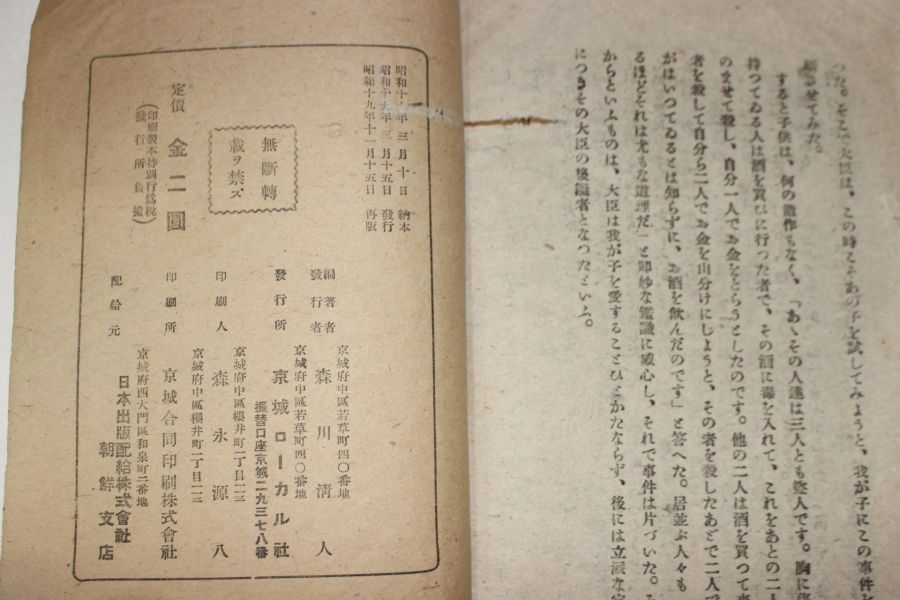 つた。そこで大臣は、この時こそあの子を試してみようと、我が子にこの事件を
させてみた。
すると子供は、何の造作もなく、「あゝその人達は三人とも盗人です。胸に
持つてゐる人は酒を買ひに行つた者で、その酒に毒を入れて、これをあとの二人
のませて殺し、自分一人でお金をとらうとしたのです。他の二人は酒を買つて
者を殺して自分ら二人でお金を山分けにしようと、その者を殺したあとで二人で
がはいつてゐるとは知らずに、お酒を飲んだのです」と答へた。居並ぶ人々も
るほどそれは尤もな道理だ」と即妙な鑑識に感心し、それで事件は片づいた。
からといふものは、大臣は我が子を愛することひとかたならず、後には立派な
につきその大臣の後継者となつたといふ。
昭和十 年三月十日 納本
昭和十九年三月十五日 發行
昭和十九年十一月十五日 再版
無斷轉
載ヲ禁ズ
定價 金二圓
(印刷製本特別行爲税
發行所負擔)
京城府中區若草町四〇番地
編著者
發行者 森川淸人
京城府中區若草町四〇番地
發行所 京城ローカル社
振替口座京城二九三七八番
京城府中區櫻井町二丁目一三
印刷人 森永源八
京城府中區櫻井町二丁目一三
印刷所 京城合同印刷株式會社
京城府西大門區和泉町二番地
配給元 日本出版配給株式會社
朝鮮支店